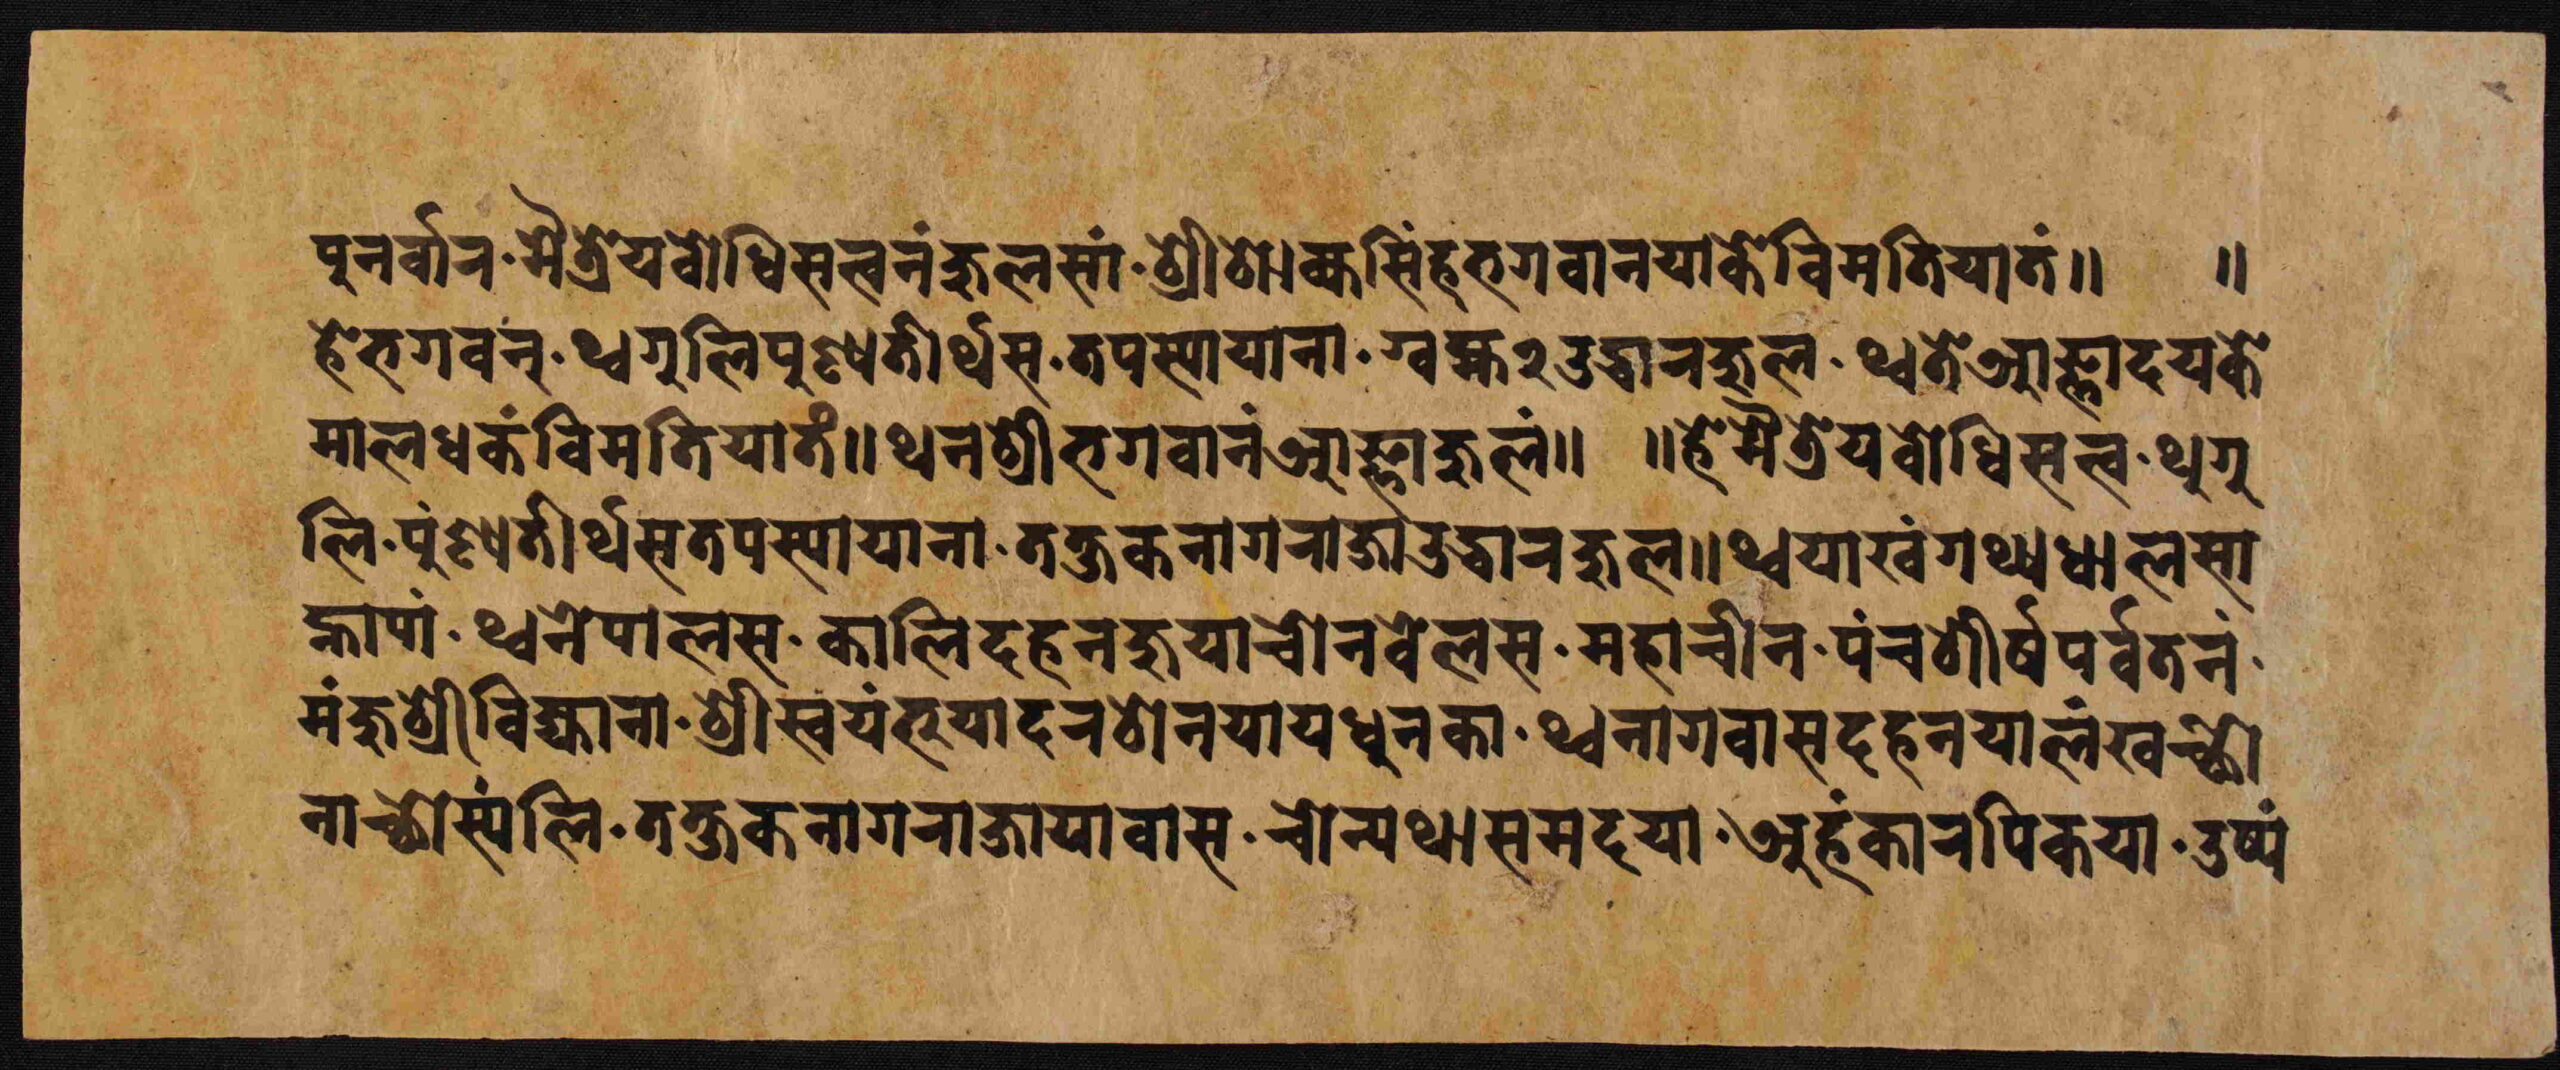 पुनर्वार·मैत्रेयवोधिसत्वनंजुलसां·श्रीशाक्यसिंहभगवानयाकेविमतियातं॥ ॥
हेभगवन्·थ्वगुलिपुण्यतीर्थस·तपस्यायाना·ग्वह्म२उद्धारजुल·थ्वतेआज्ञादयके
मालधकंविमतियातं॥थनश्रीभगवानंआज्ञाजुलं॥ ॥हेमैत्रेयवोधिसत्व·थुगु
लि·पुंण्यतीर्थसतपस्यायाना·तक्षकनागराजाउद्धारजुल॥थ्वयाखंगथ्यधालसा
ह्नापां·थ्वनेपालस·कालिदहनजुयाचोनवेलस·महाचीन·पंचशीर्षपर्वतनं·
मंजुश्रीविज्याना·श्रीस्वयंभूयादरशेनयायधुनका·थ्वनागवासदहनयालंखच्छो
नाच्छोस्यंलि·तक्षकनागराजायावास·चोन्यथासमदया·अहंकारपिकया·उष्यं